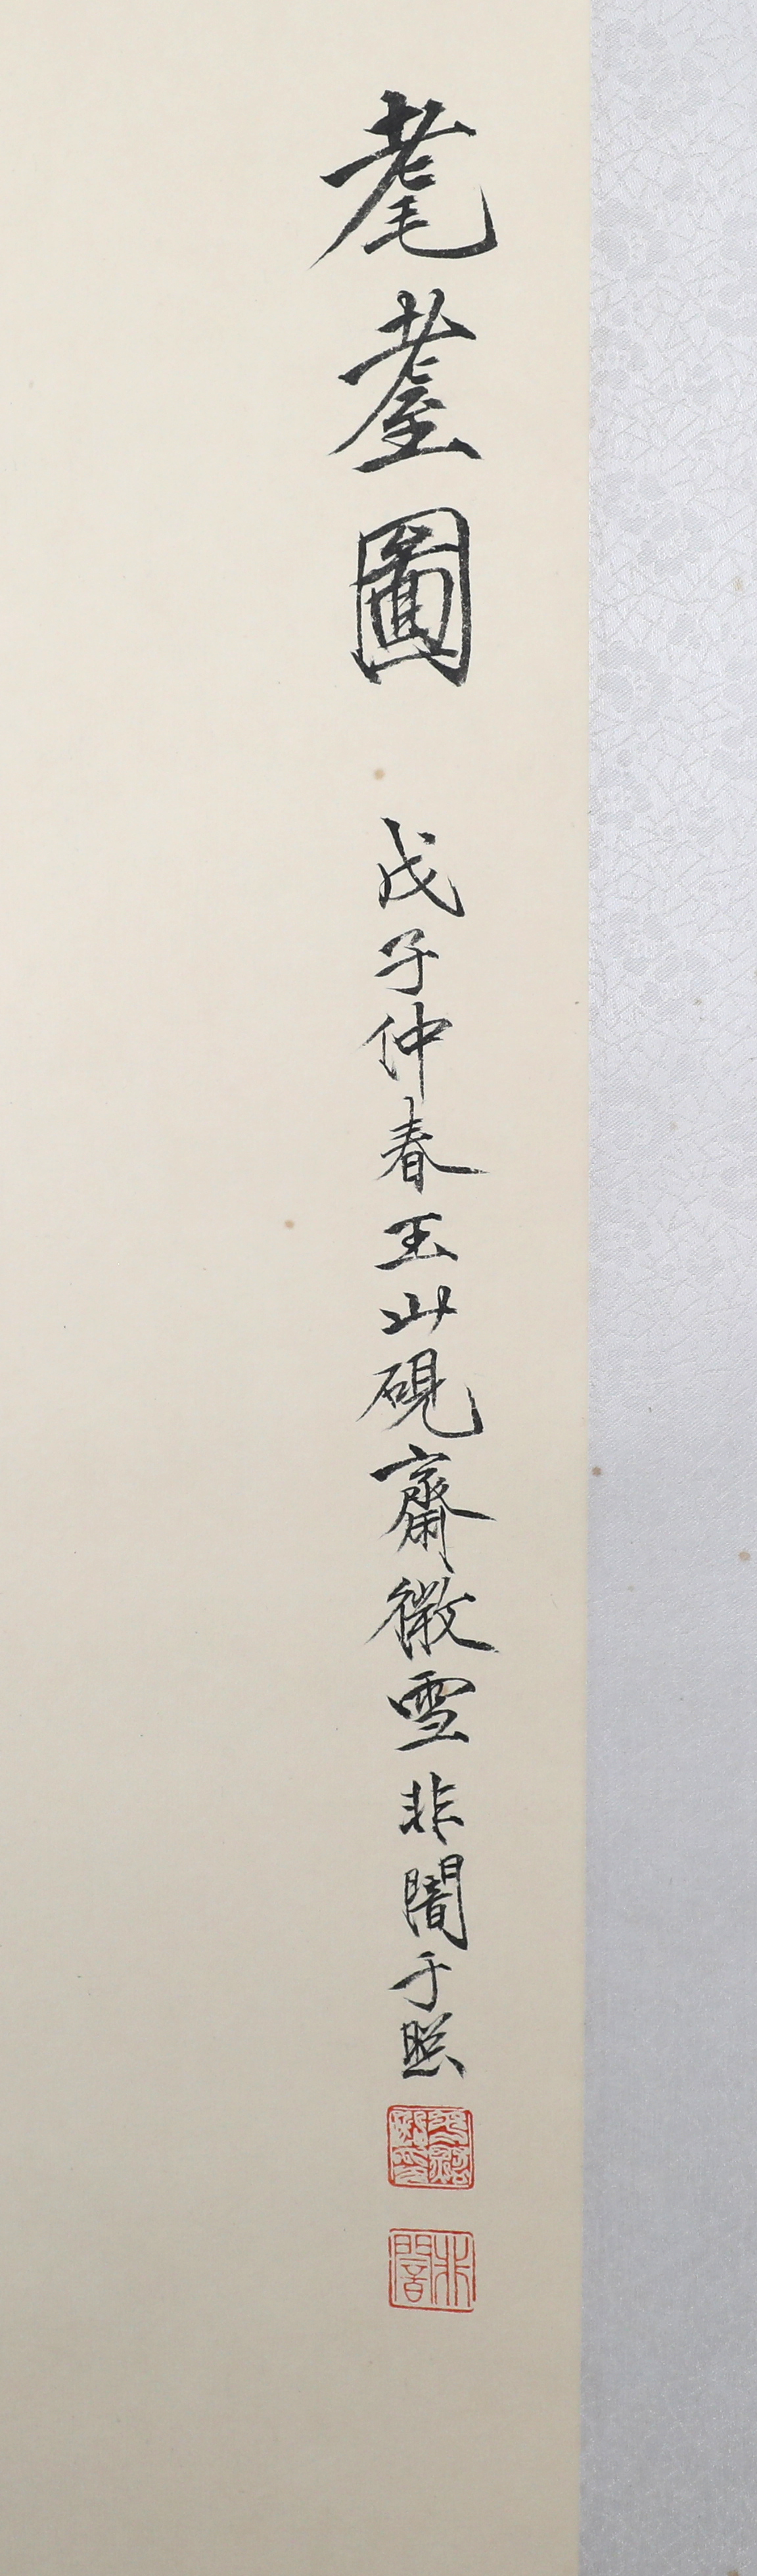 耄耋圖 戊子仲春玉山硯齋微雪非闇于照
非闇